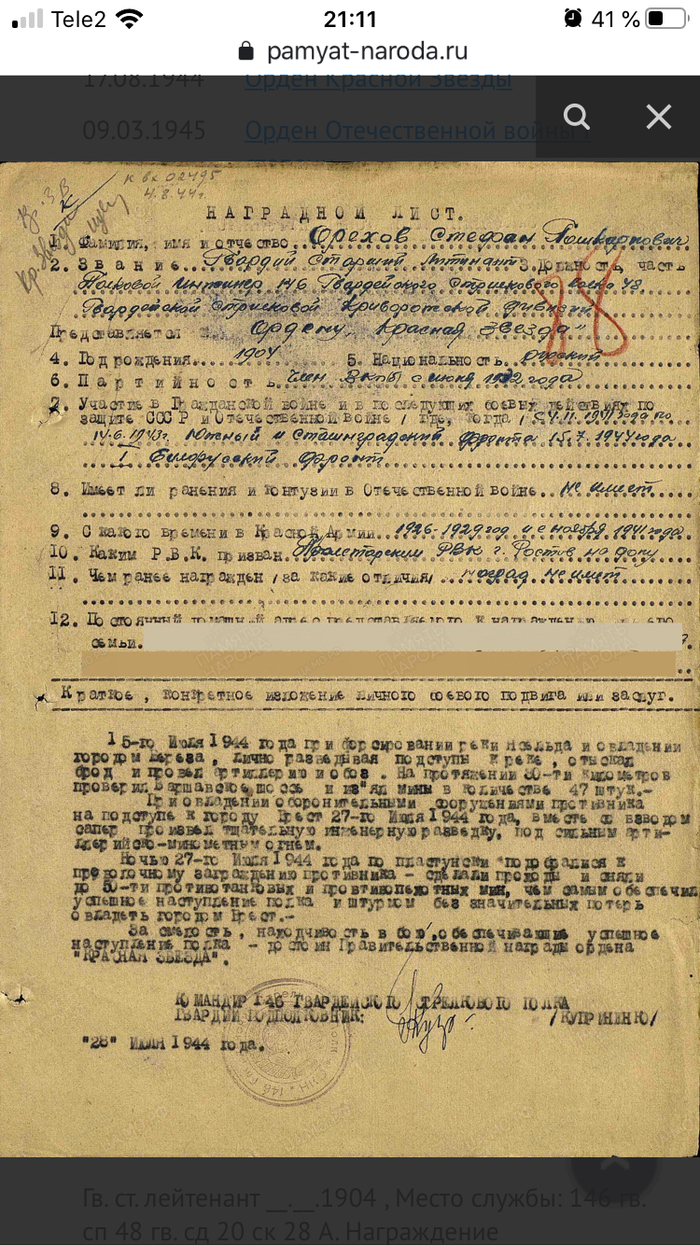 Tele2
21:11
41 %
pamyat-naroda.ru
17.08.1944 Орден Красной Звезды
09.03.1945 Орден Отечественной войны
к вх 02495
4.8.44г.
НАГРАДНОЙ ЛИСТ.
1. Фамилия, имя и отчество Орехов Стефан
2. Звание Гвардий Старший Лтинант 3. Должность, часть
Полковой Инжинер 146 Гвардейского Стрелкового полка 48
Гвардейской Стрелковой Криворотской дивизии
Представляется Ордену "Красная Звезда"
4. Год рождения 1904 5. Национальность русский
6. Партийность Член ВКПб с июня года
7. Участие в Гражданской войне и в последующих боевых действиях по
защите СССР и Отечественной войне / где, когда / 1941 года по
14.6.1943г. Южный и Сталинградский фронта 15.7.1944 года
I Белорусский фронт
8. Имеет ли ранения и контузии в Отечественной войне Не имеет
9. С какого времени в Красной Армии 1926-1929 год и с ноября 1941 года
10. Каким Р.В.К. призван Пролетарским РВК г. Ростов на дону
11. Чем ранее награжден /за какие отличия/ наград не имет
12. Постоянный домашний адрес представляемого к награждению его
семьи.
Краткое, конкретное изложение личного боевого подвига или заслуг.
15-го Июля 1944 года при форсировании реки Ясельда и овладении
городом Береза, лично разведывая подступы к реке, отыскал
брод и провел артиллерию и обоз. На протяжении 30-ти километров
проверил Варшавское шоссе и изъял мины в количестве 47 штук.-
При овладении оборонительными сооружениями противника
на подступе к городу Брест 27-го Июля 1944 года, вместе со взводом
сапер произвел тщательную инженерную разведку, под сильным арти-
ллерийско-минометным огнем.
Ночью 27-го Июля 1944 года по пластунски подобрался к
проволочному заграждению противника - сделали проходы и сняли
до 50-ти противотанковых и противопехотных мин, чем самым обеспечил
успешное наступление полка и штурмом без значительных потерь
овладеть городом Брест.-
За смелость, находчивость в бою, обеспечивающие успешное
наступление полка - достоин Правительственной награды ордена
"КРАСНАЯ ЗВЕЗДА".
КОМАНДИР 146 ГВАРДЕЙСКОГО СТРЕЛКОВОГО ПОЛКА
ГВАРДИИ ПОДПОЛКОВНИК: /КУПРИНЕНКО/
"28" ИЮЛЯ 1944 года.
Гв. ст. лейтенант __.__.1904 , Место службы: 146 гв.
сп 48 гв. сд 20 ск 28 А. Награждение